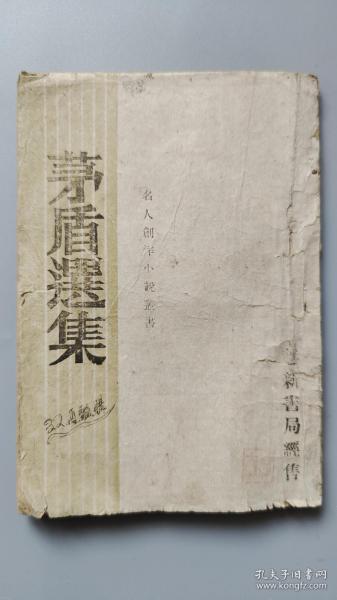 茅盾選集
名人創作小說叢書
新書局經售
孔夫子旧书网
www.kongfz.com